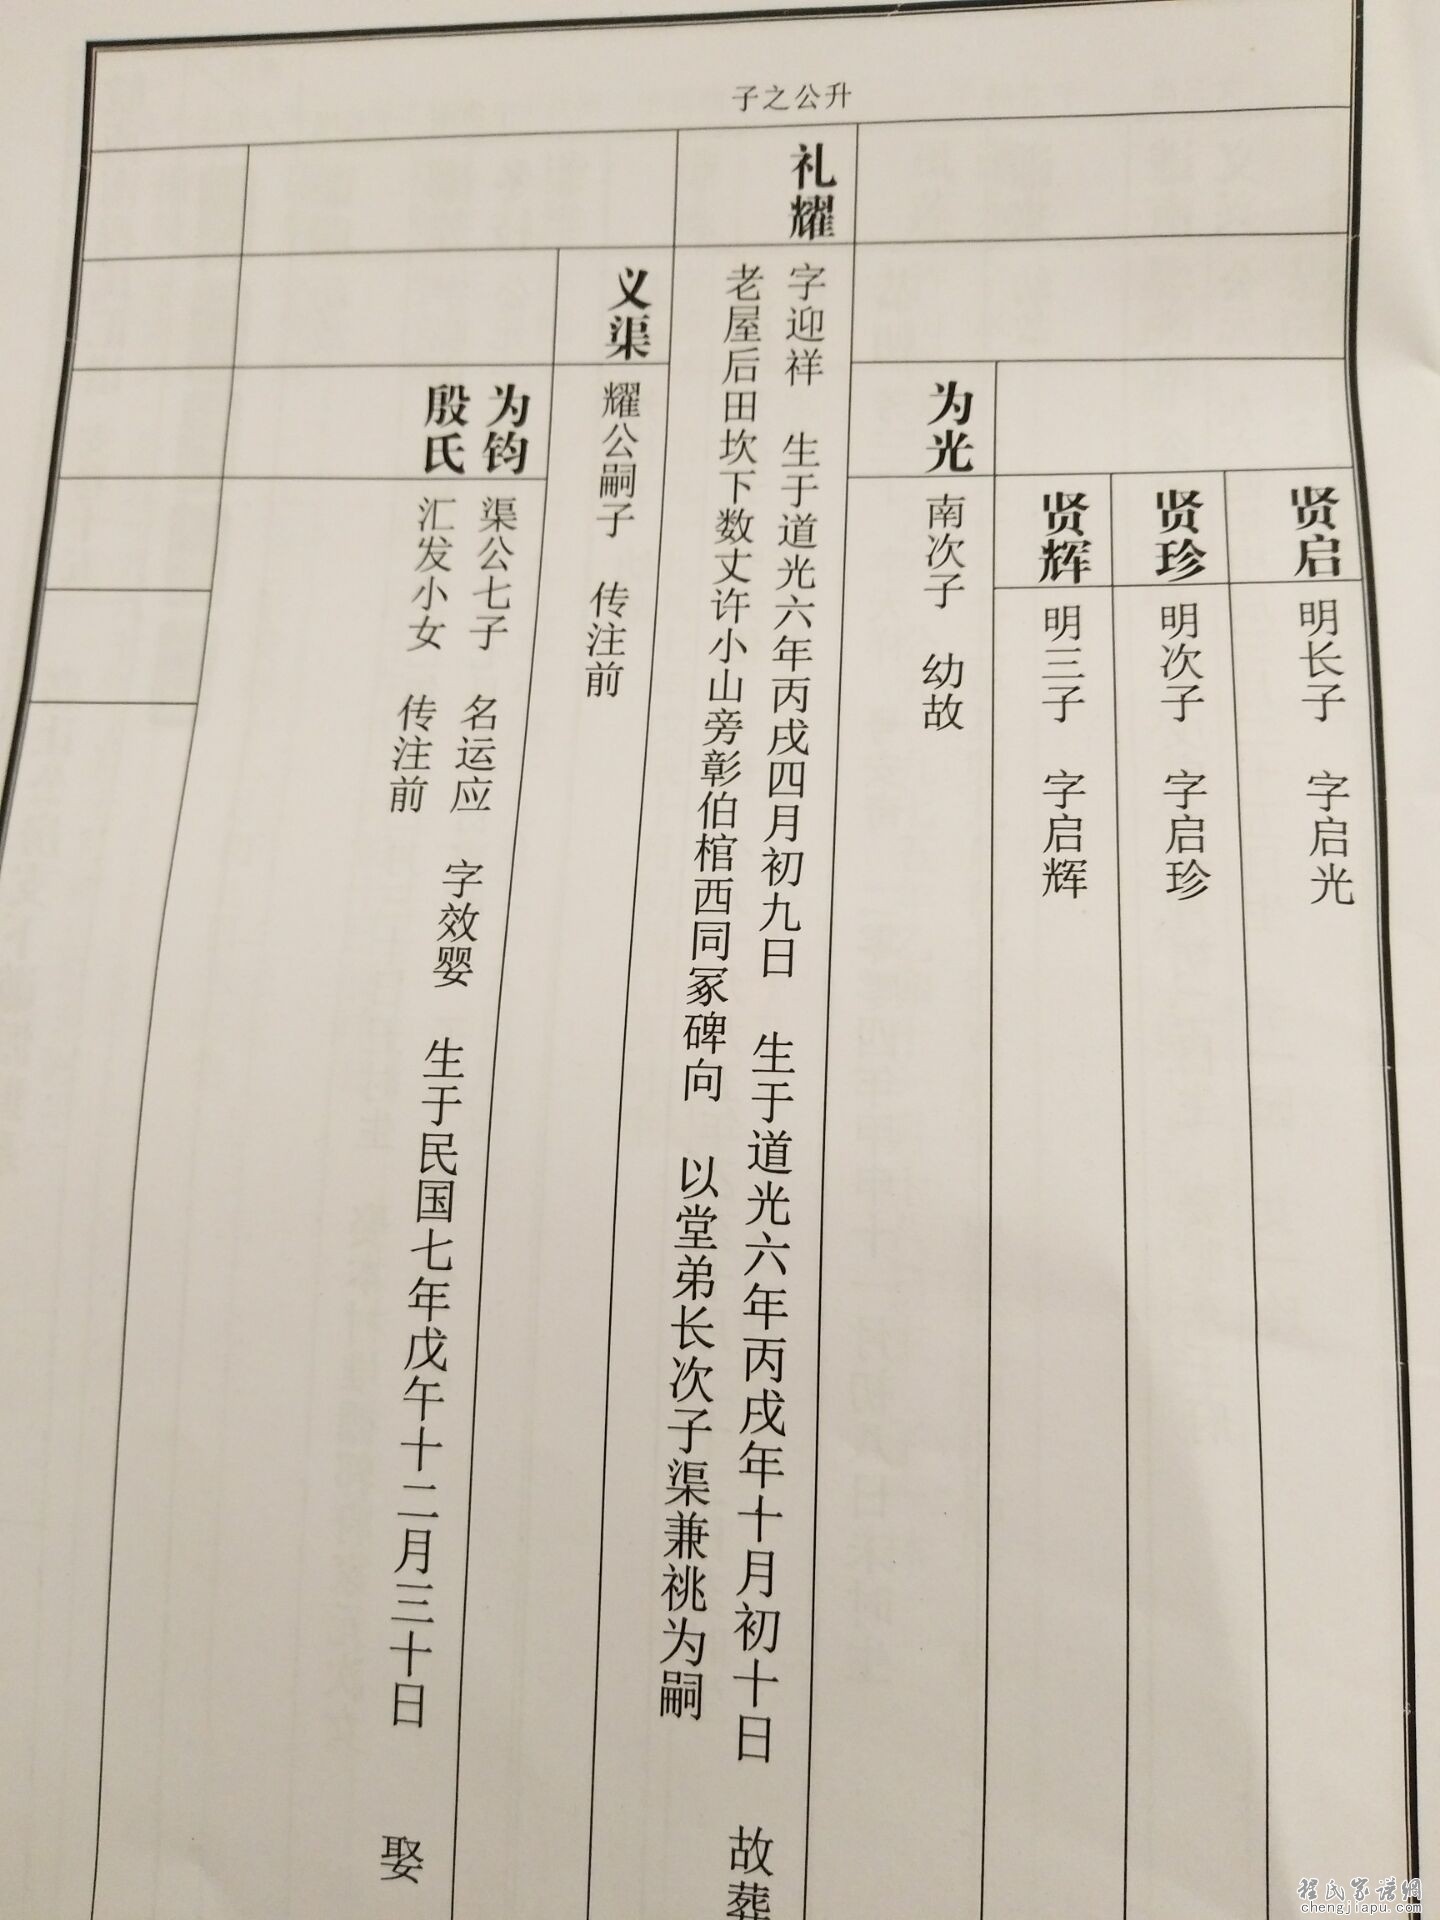 升公之子
贤启 明长子 字启光
贤珍 明次子 字启珍
贤辉 明三子 字启辉
为光 南次子 幼故
礼耀 字迎祥 生于道光六年丙戌四月初九日 生于道光六年丙戌年十月初十日 故葬
老屋后田坎下数丈许小山旁彰伯棺西同冢碑向 以堂弟长次子渠兼祧为嗣
义渠 耀公嗣子 传注前
为钧 渠公七子 名运应 字效婴 生于民国七年戊午十二月三十日 娶
殷氏 汇发小女 传注前
程氏家谱网
chengjiapu.com